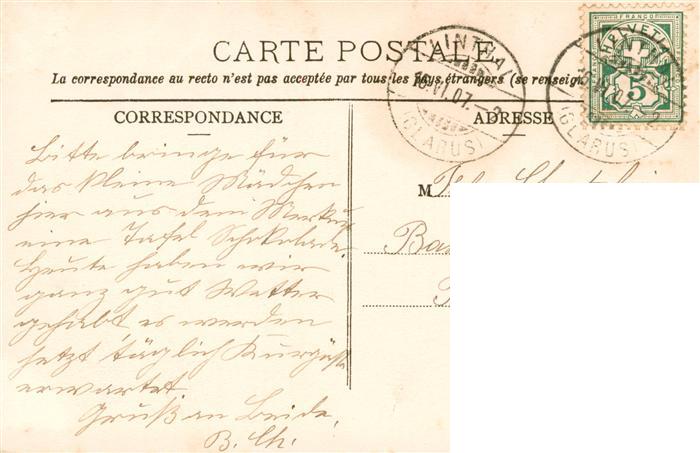 CARTE POSTALE
La correspondance au recto n'est pas acceptée par tous les pays étrangers (se renseign
CORRESPONDANCE
ADRESSE
Bitte bringe für
das kleine Mädchen
hier aus dem Merkur
eine Tafel Schokolade.
Heute haben wir
ganz gut Wetter
gehabt es werden
jetzt täglich Kurgäste
erwartet.
Gruß an Beide.
B. Ch.
M
LINTHAL
16.VI.07.
(GLARUS)
FRANCO
HELVETIA
5
(GLARUS)